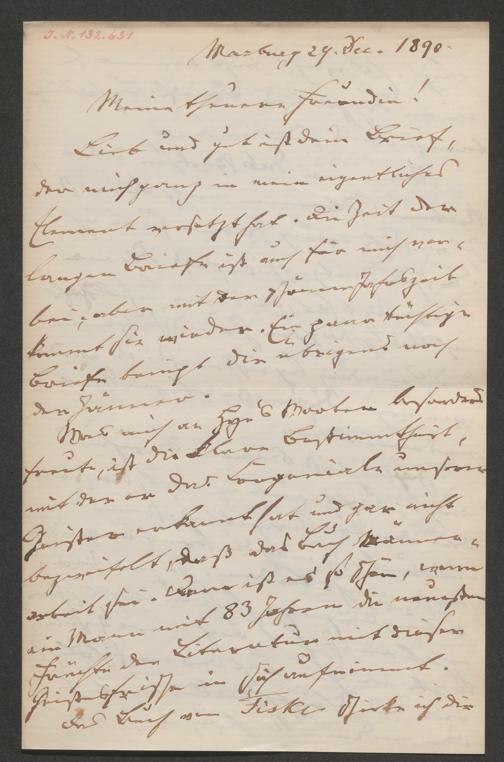 J. N. 132.631
Marburg 29. Dec. 1890.
Meine theuere Freundin!
Lieb und gut ist dein Brief,
der mich ganz in mein eigentliches
Element versetzt hat. Die Zeit der
langen Briefe ist auch für mich vor-
bei; aber mit der schönen Jahreszeit
kommt sie wieder. Ein paar tüchtige
Briefe bringt dir übrigens noch
der Jänner.
Was mich an Worten besonders
freute, ist die klare Bestimmtheit,
mit der er das Congeniale unserer
Geister erkannt hat und gar nicht
bezweifelt, daß das Buch Männer-
arbeit sei. Dann ist es so schön, wenn
ein Mann mit 83 Jahren die neuesten
Früchte der Literatur mit dieser
Geistesfrische in sich aufnimmt.
Das Buch von Fiske schicke ich dir